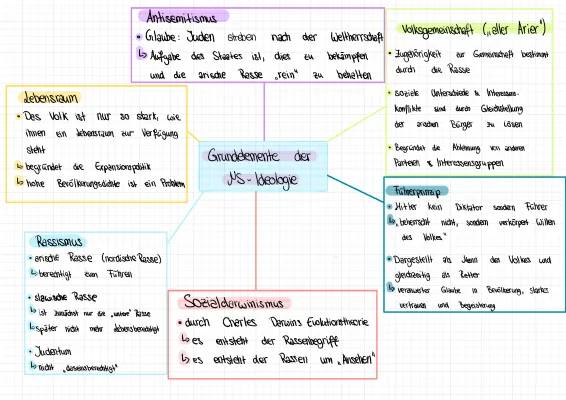 Antisemitismus
• Glaube: Juden streben nach der Weltherrschaft
↳ Aufgabe des Staates ist, dies zu bekämpfen
und die arische Rasse „rein“ zu behalten
Volksgemeinschaft („aller Arier“)
• Zugehörigkeit zur Gemeinschaft bestimmt
durch die Rasse
• soziale Unterschiede & Interessens-
konflikte sind durch Gleichstellung
der arischen Bürger zu lösen
• Begründet die Ablehnung von anderen
Parteien & Interessensgruppen
Lebensraum
• Das Volk ist nur so stark, wie
ihnen ein Lebensraum zur Verfügung
steht
↳ begründet die Expansionspolitik
↳ hohe Bevölkerungsdichte ist ein Problem
Grundelemente der
NS-Ideologie
Führerprinzip
• Hitler kein Diktator sondern Führer
↳ „beherrscht nicht, sondern verkörpert Willen
des Volkes“
• Dargestellt als Mann des Volkes und
gleichzeitig als Retter
↳ Glaube in Bevölkerung, starkes
vertrauen und Begeisterung
Rassismus
• arische Rasse (nordische Rasse)
↳ berechtigt zum Führen
• slawische Rasse
↳ ist zunächst nur die „untere“ Rasse
↳ später nicht mehr lebensberechtigt
• Judentum
↳ nicht „daseinsberechtigt“
Sozialdarwinismus
• durch Charles Darwins Evolutionstheorie
↳ es entsteht der Rassenbegriff
↳ es entsteht der Rassen um „Ansehen“